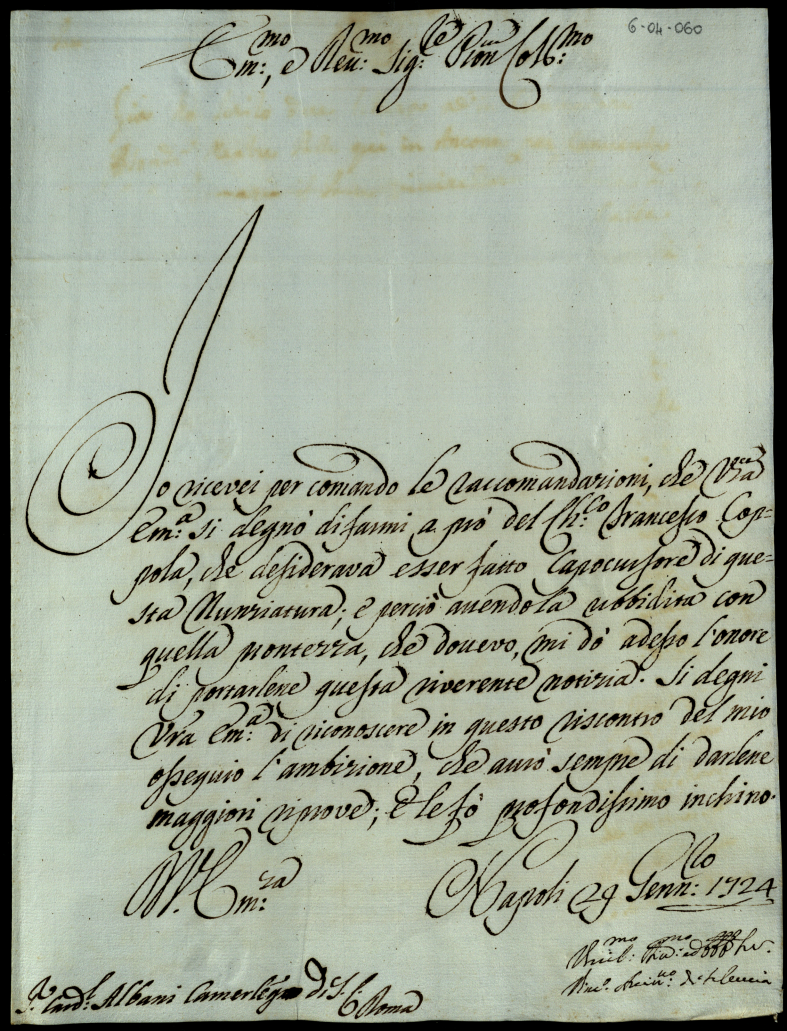 6-04-060
Em:mo, e Reu:mo Sig:re Pron Col:mo
Io ricevei per comando le raccomandazioni, che Vra
Em:a si degnò di farmi a prò del Ch:co Francesco Cop=
pola, che desiderava esser fatto Capocursore di que=
sta Nunziatura; e perciò auendola ubbidita con
quella prontezza, che douevo, mi dò adesso l'onore
di portarlene questa riverente notizia. Si degni
Vra Em:a di riconoscere in questo riscontro del mio
ossequio l'ambizione, che aurò sempre di darlene
maggiori riprove; E le fò profondissimo inchino.
Napoli 29 Genn:ro 1724
V. Em:za
S.r Card.l Albani Camerlẽgo di S.C. Roma